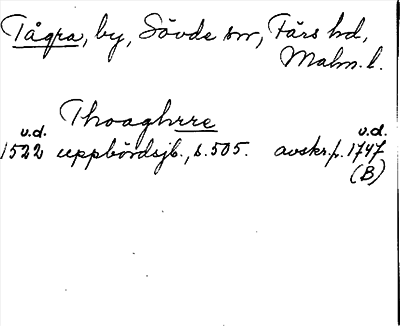 Tågra, by, Sövde sn, Färs hd,
Malm. l.
Thoaghrre
u.d. u.d.
1522 uppbördsjb., s. 505. avskr. f. 1747
(B)